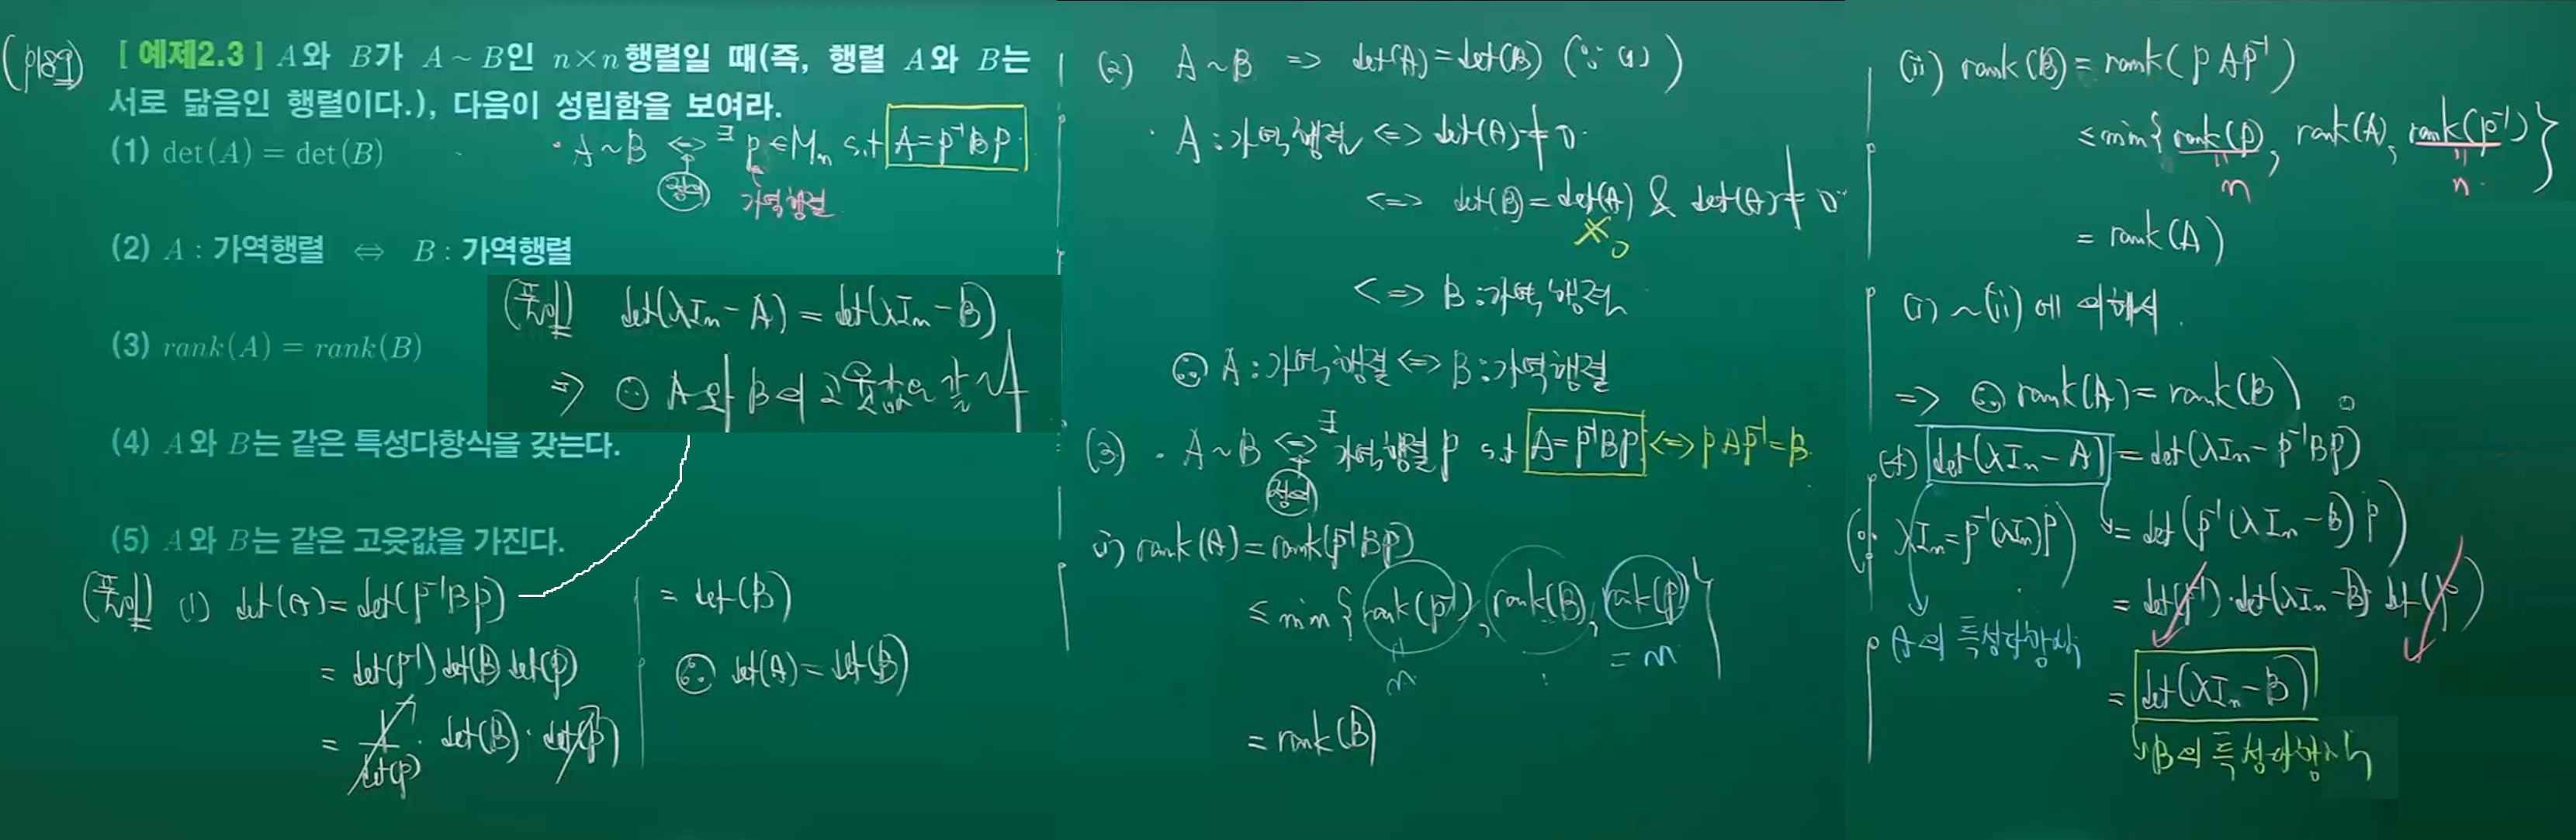 (p189)
[ 예제2.3 ] A와 B가 A ~ B인 n×n행렬일 때(즉, 행렬 A와 B는
서로 닮음인 행렬이다.), 다음이 성립함을 보여라.
(1) det(A) = det(B)
· A~B ⇔ ∃ p∈Mₙ s.t A=p⁻¹Bp.
정의
가역행렬
(2) A : 가역행렬 ⇔ B : 가역행렬
(3) rank(A) = rank(B)
(풀이) det(λIₙ-A) = det(λIₙ-B)
⇒ ∴ A와 B의 고윳값은 같다
(4) A와 B는 같은 특성다항식을 갖는다.
(5) A와 B는 같은 고윳값을 가진다.
(풀이) (1) det(A) = det(p⁻¹Bp)
= det(p⁻¹) det(B) det(p)
= 1/det(p) · det(B) · det(p)
= det(B)
∴ det(A) = det(B)
(2) A~B ⇒ det(A) = det(B) (∵ (1))
· A : 가역행렬 ⇔ det(A) ≠ 0
⇔ det(B) = det(A) & det(A) ≠ 0
≠ 0
⇔ B : 가역행렬
∴ A : 가역행렬 ⇔ B : 가역행렬
(3) · A~B ⇔ ∃ 가역행렬 p s.t A=p⁻¹Bp ⇔ pAp⁻¹=B
정의
(i) rank(A) = rank(p⁻¹Bp)
≤ min{rank(p⁻¹), rank(B), rank(p)}
n
= n
= rank(B)
(ii) rank(B) = rank(pAp⁻¹)
≤ min{rank(p), rank(A), rank(p⁻¹)}
n n
= rank(A)
(i) ~ (ii)에 의해서
⇒ ∴ rank(A) = rank(B)
(4) det(λIₙ-A) = det(λIₙ - p⁻¹Bp)
(∵ λIₙ = p⁻¹(λIₙ)p) = det(p⁻¹(λIₙ-B)p)
= det(p⁻¹)·det(λIₙ-B)·det(p)
A의 특성다항식
= det(λIₙ-B)
B의 특성다항식